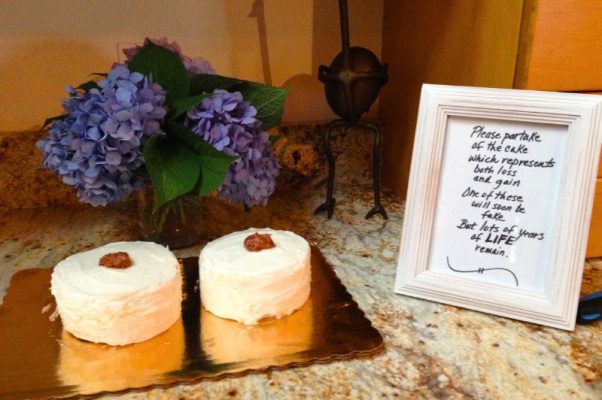 Please partake
of the cake
which represents
both loss
and gain
One of these
will soon be
fake.
But lots of years
of LIFE
remain.